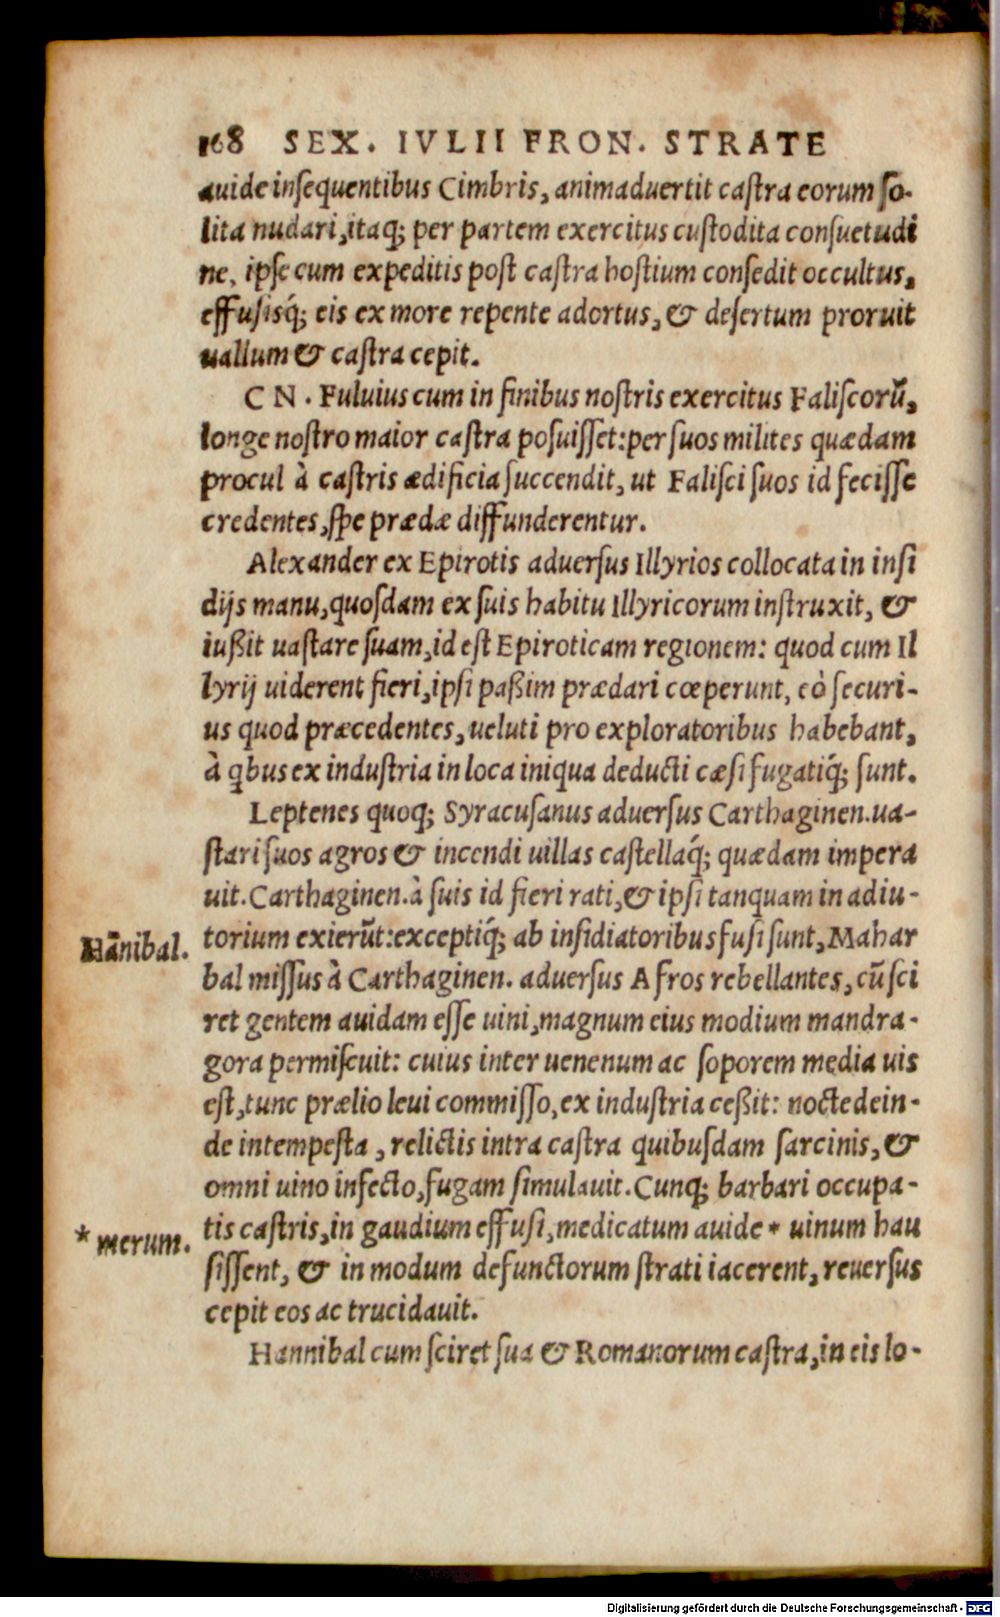 168 SEX. IVLII FRON. STRATE
auide inſequentibus Cimbris, animaduertit caſtra eorum ſo-
lita nudari, itaq; per partem exercitus cuſtodita conſuetudi
ne, ipſe cum expeditis poſt caſtra hoſtium conſedit occultus,
effuſisq́; eis ex more repente adortus, & deſertum proruit
uallum & caſtra cepit.
CN. Fuluius cum in finibus noſtris exercitus Faliſcorũ,
longe noſtro maior caſtra poſuiſſet: per ſuos milites quædam
procul à caſtris ædificia ſuccendit, ut Faliſci ſuos id feciſſe
credentes, ſpe prædæ diffunderentur.
Alexander ex Epirotis aduerſus Illyrios collocata in inſi
dijs manu, quoſdam ex ſuis habitu Illyricorum inſtruxit, &
iußit uaſtare ſuam, id eſt Epiroticam regionem: quod cum Il
lyrij uiderent fieri, ipſi paßim prædari cœperunt, eò ſecuri-
us quod præcedentes, ueluti pro exploratoribus habebant,
à qbus ex induſtria in loca iniqua deducti cæſi fugatiq́; ſunt.
Leptenes quoq; Syracuſanus aduerſus Carthaginen. ua-
ſtari ſuos agros & incendi uillas caſtellaq́; quædam impera
uit. Carthaginen. à ſuis id fieri rati, & ipſi tanquam in adiu-
Hãnibal.
torium exierũt: exceptiq́; ab inſidiatoribus fuſi ſunt, Mahar
bal miſſus à Carthaginen. aduerſus Afros rebellantes, cũ ſci
ret gentem auidam eſſe uini, magnum eius modium mandra-
gora permiſcuit: cuius inter uenenum ac ſoporem media uis
eſt, tunc prælio leui commiſſo, ex induſtria ceßit: nocte dein-
de intempeſta, relictis intra caſtra quibuſdam ſarcinis, &
omni uino infecto, fugam ſimulauit. Cunq; barbari occupa-
* merum.
tis caſtris, in gaudium effuſi, medicatum auide * uinum hau
ſiſſent, & in modum defunctorum ſtrati iacerent, reuerſus
cepit eos ac trucidauit.
Hannibal cum ſciret ſua & Romanorum caſtra, in eis lo-
Digitalisierung gefördert durch die Deutsche Forschungsgemeinschaft - DFG